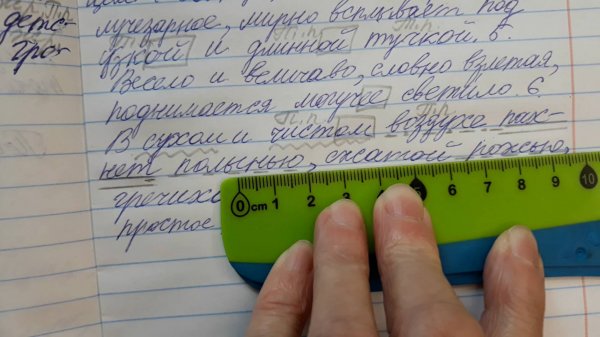 лучезарное, мирно всплывает под
узкой и длинной тучкой. 5.
Весело и величаво, словно взлетая,
поднимается могучее светило 6
В сухом и чистом воздухе пах-
нет полынью, сжатой рожью,
гречихо
простое
0 cm 1 2 3 4 5 6 7 8 9 10